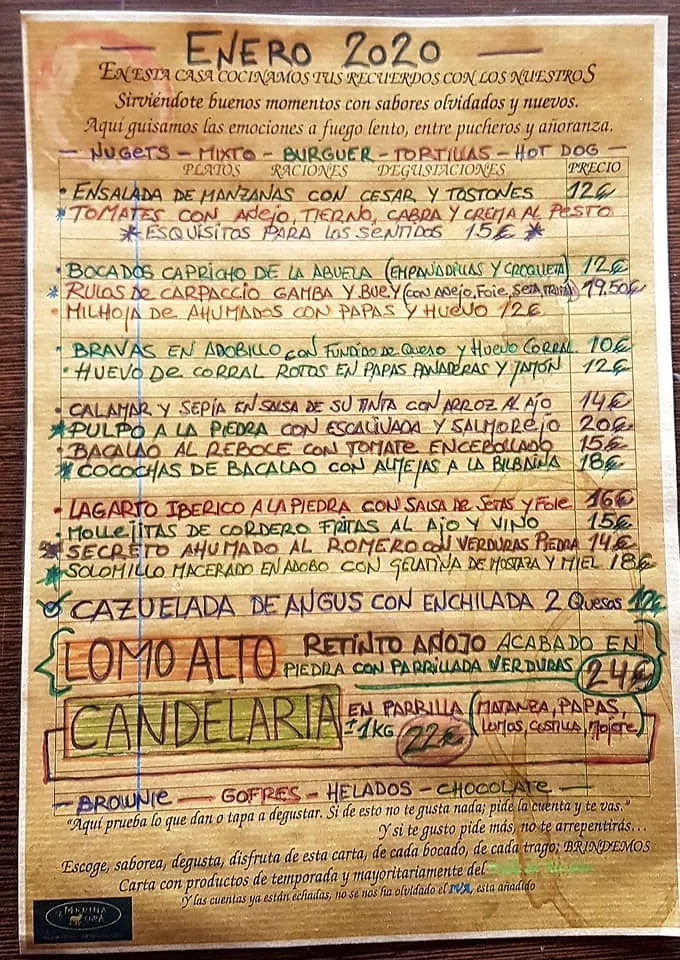 — ENERO 2020 —
EN ESTA CASA COCINAMOS TUS RECUERDOS CON LOS NUESTROS
Sirviéndote buenos momentos con sabores olvidados y nuevos.
Aquí guisamos las emociones a fuego lento, entre pucheros y añoranza.
— NUGETS — MIXTO — BURGUER — TORTILLAS — HOT DOG —
PLATOS RACIONES DEGUSTACIONES PRECIO
• ENSALADA DE MANZANAS CON CESAR Y TOSTONES 12€
* TOMATES CON AÑEJO, TIERNO, CABRA Y CREMA AL PESTO
* ESQUISITOS PARA LOS SENTIDOS 15€ *
• BOCADOS CAPRICHO DE LA ABUELA (EMPANADILLAS Y CROQUETA) 12€
* RULOS DE CARPACCIO GAMBA Y BUEY (CON AÑEJO, FOIE, SETA, TRUFA) 19.50€
• MILHOJA DE AHUMADOS CON PAPAS Y HUEVO 12€
• BRAVAS EN ADOBILLO CON FUNDIDO DE QUESO Y HUEVO CORRAL 10€
• HUEVO DE CORRAL ROTOS EN PAPAS PANADERAS Y JAMÓN 12€
• CALAMAR Y SEPÍA EN SALSA DE SU TINTA CON ARROZ AL AJO 14€
* PULPO A LA PIEDRA CON ESCALIVADA Y SALMOREJO 20€
• BACALAO AL REBOCE CON TOMATE ENCEBOLLADO 15€
* COCOCHAS DE BACALAO CON ALMEJAS A LA BILBAINA 18€
• LAGARTO IBERICO A LA PIEDRA CON SALSA DE SETAS Y FOIE 16€
• MOLLEJITAS DE CORDERO FRITAS AL AJO Y VINO 15€
* SECRETO AHUMADO AL ROMERO CON VERDURAS PIEDRA 14€
* SOLOMILLO MACERADO EN ADOBO CON GELATINA DE MOSTAZA Y MIEL 18€
CAZUELADA DE ANGUS CON ENCHILADA 2 QUESOS
LOMO ALTO RETINTO AÑOJO ACABADO EN
PIEDRA CON PARRILLADA VERDURAS 24€
CANDELARIA EN PARRILLA (MATANZA, PAPAS,
±1KG 22€ LOMOS, COSTILLA, MOJETE)
— BROWNIE — GOFRES — HELADOS — CHOCOLATE —
"Aquí prueba lo que dan o tapa a degustar. Si de esto no te gusta nada; pide la cuenta y te vas."
Y si te gusto pide más, no te arrepentirás…
Escoge, saborea, degusta, disfruta de esta carta, de cada bocado, de cada trago; BRINDEMOS
Carta con productos de temporada y mayoritariamente del
Y las cuentas ya están echadas, no se nos ha olvidado el IVA, esta añadido